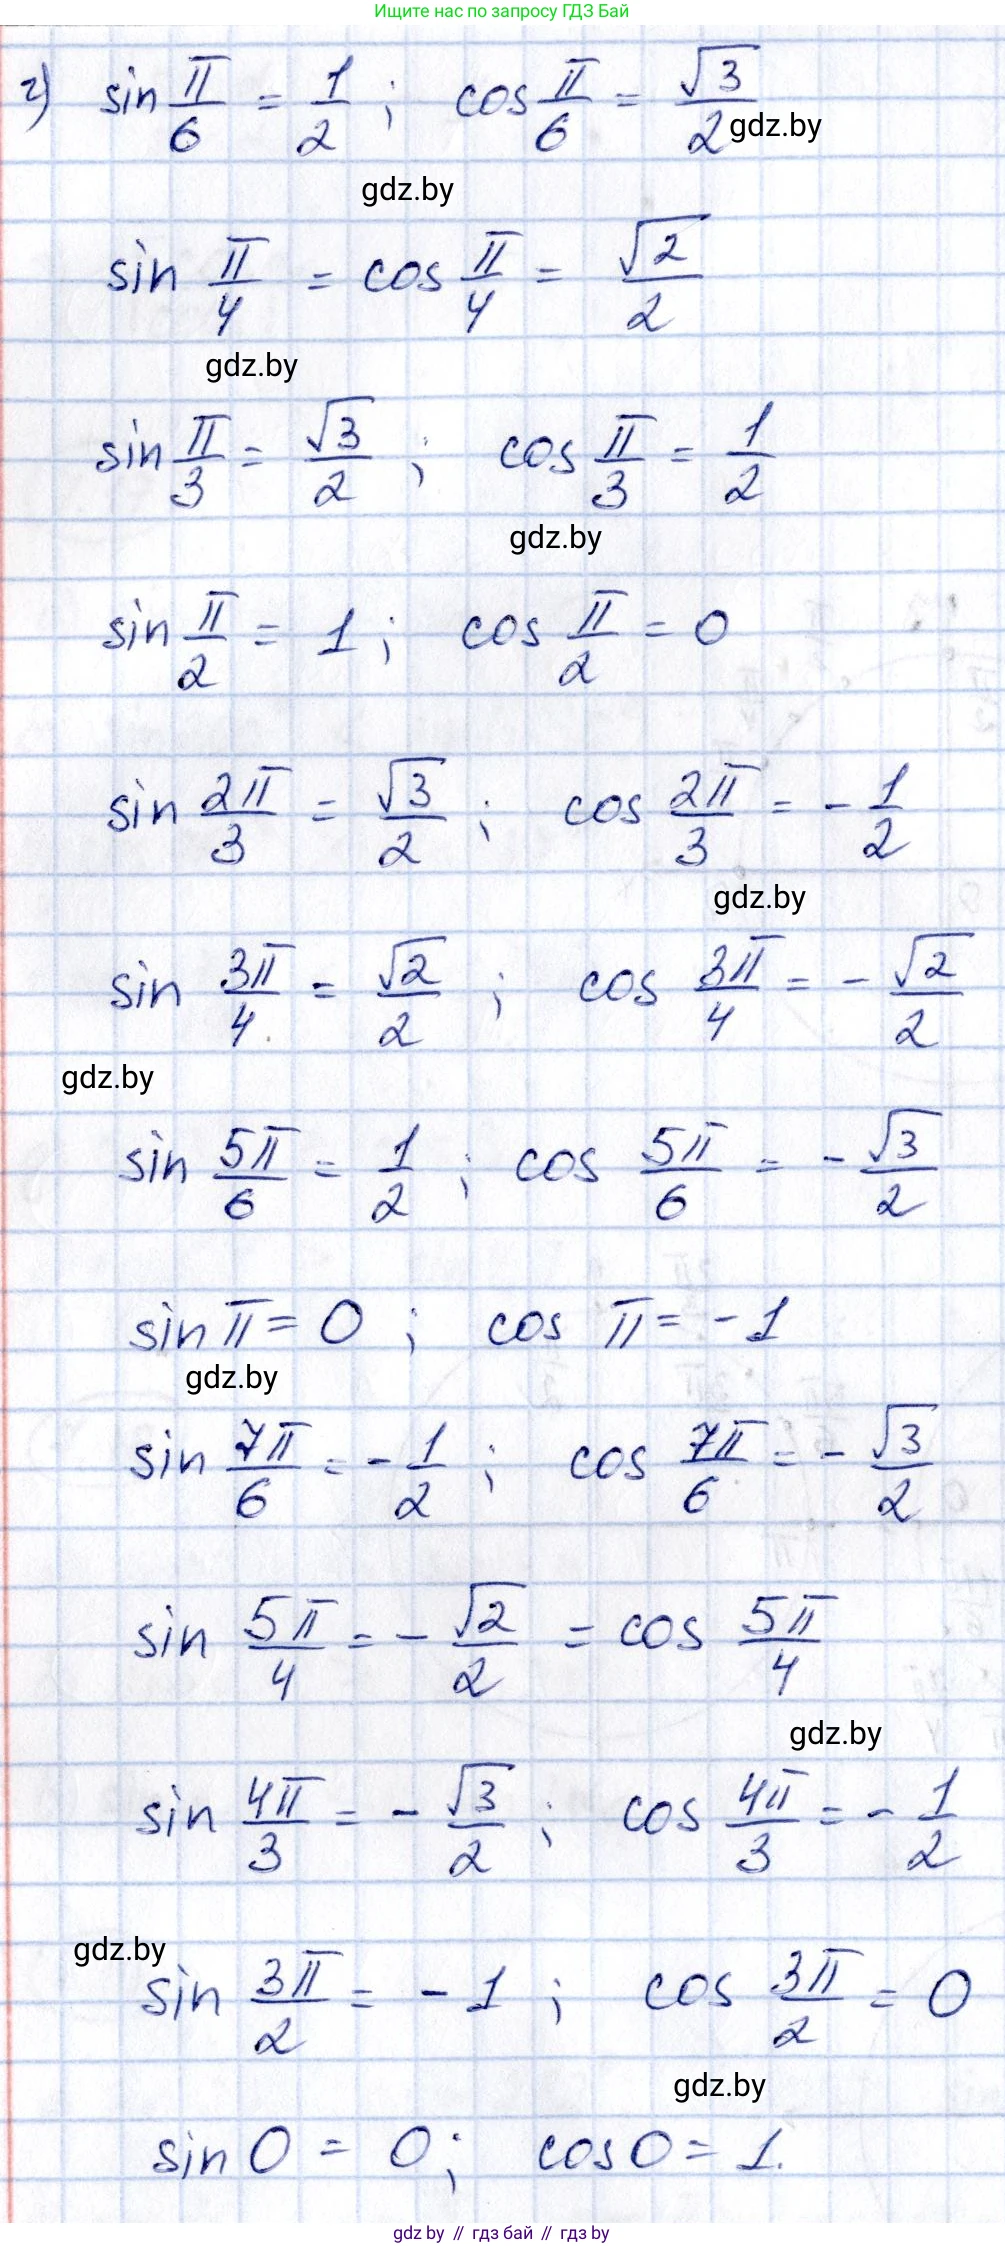 Ищите нас по запросу ГДЗ Бай
г) sin π/6 = 1/2 ; cos π/6 = √3/2
gdz.by
gdz.by
sin π/4 = cos π/4 = √2/2
gdz.by
sin π/3 = √3/2 ; cos π/3 = 1/2
gdz.by
sin π/2 = 1 ; cos π/2 = 0
sin 2π/3 = √3/2 ; cos 2π/3 = - 1/2
gdz.by
sin 3π/4 = √2/2 ; cos 3π/4 = - √2/2
gdz.by
sin 5π/6 = 1/2 ; cos 5π/6 = - √3/2
sin π = 0 ; cos π = -1
gdz.by
sin 7π/6 = - 1/2 ; cos 7π/6 = - √3/2
sin 5π/4 = - √2/2 = cos 5π/4
gdz.by
sin 4π/3 = - √3/2 ; cos 4π/3 = - 1/2
gdz.by
sin 3π/2 = - 1 ; cos 3π/2 = 0
gdz.by
sin 0 = 0 ; cos 0 = 1.
gdz by // гдз бай // гдз by